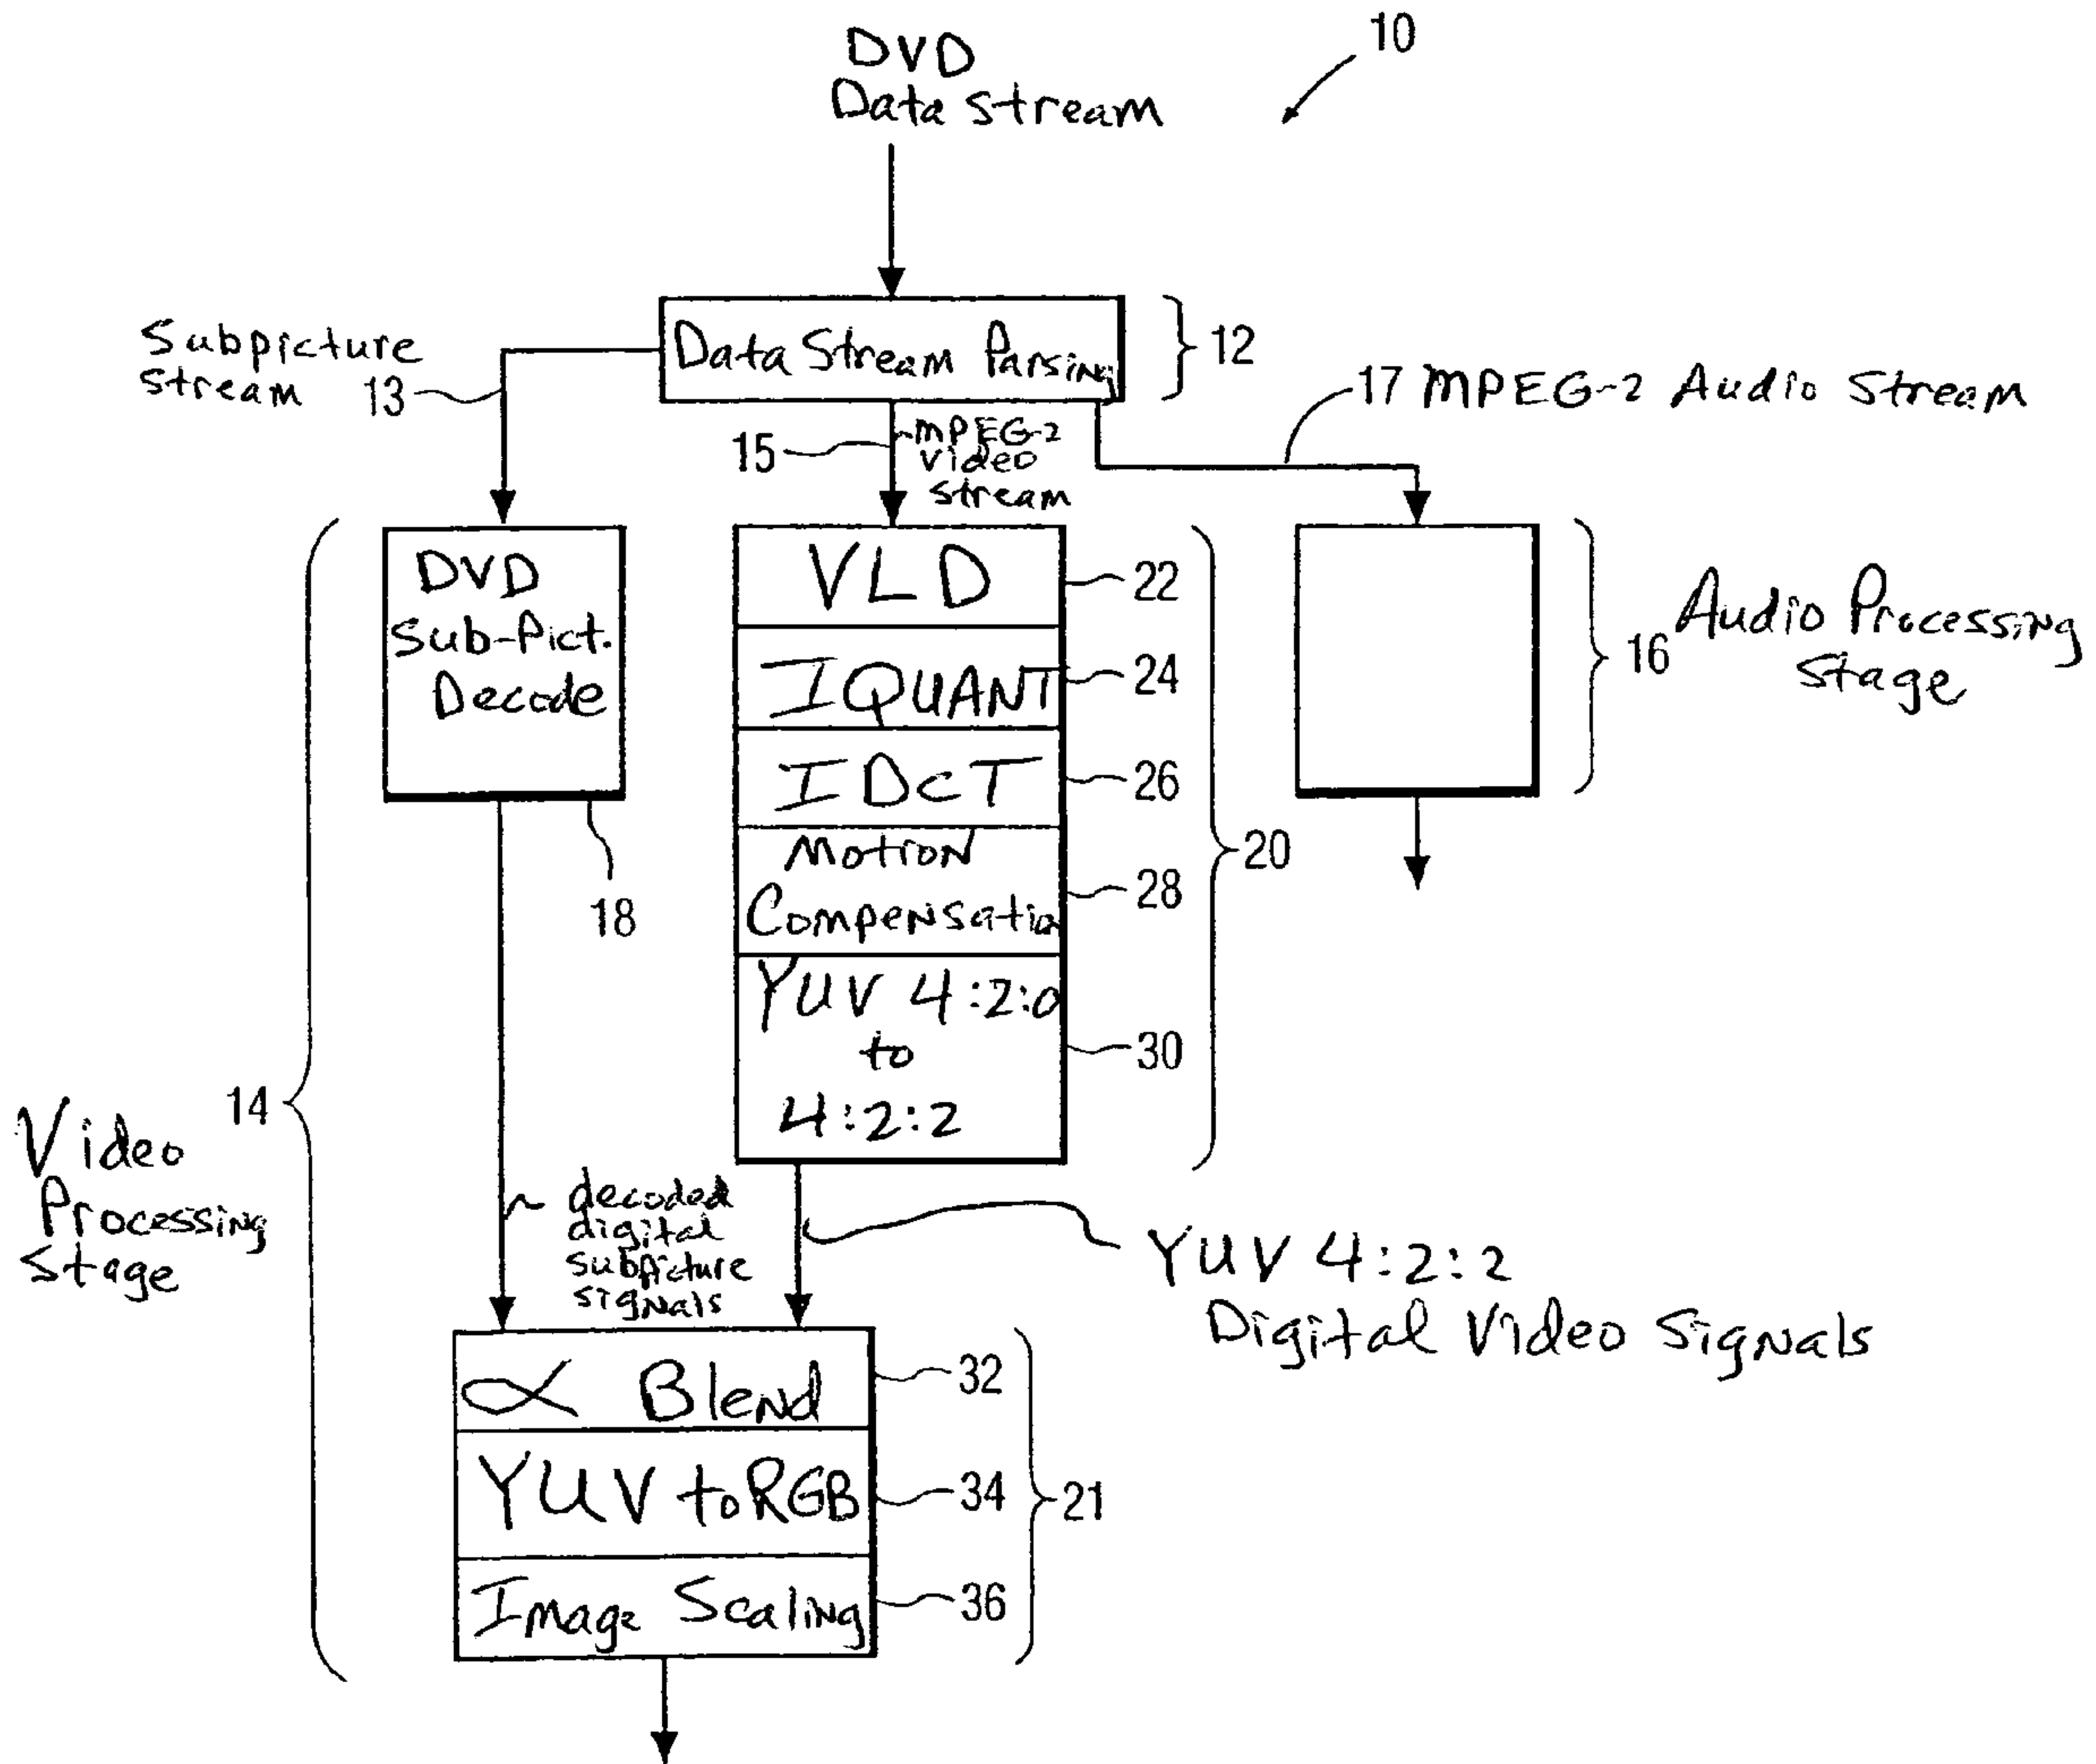 DVD
Data Stream
10
Data Stream Parsing
12
Subpicture
stream
13
15
MPEG-2
Video
stream
17 MPEG-2 Audio Stream
DVD
Sub-Pict.
Decode
18
VLD
22
IQUANT
24
IDCT
26
Motion
Compensation
28
YUV 4:2:0
to
4:2:2
30
20
16
Audio Processing
Stage
14
Video
Processing
Stage
decoded
digital
subpicture
signals
YUV 4:2:2
Digital Video Signals
α Blend
32
YUV to RGB
34
Image Scaling
36
21